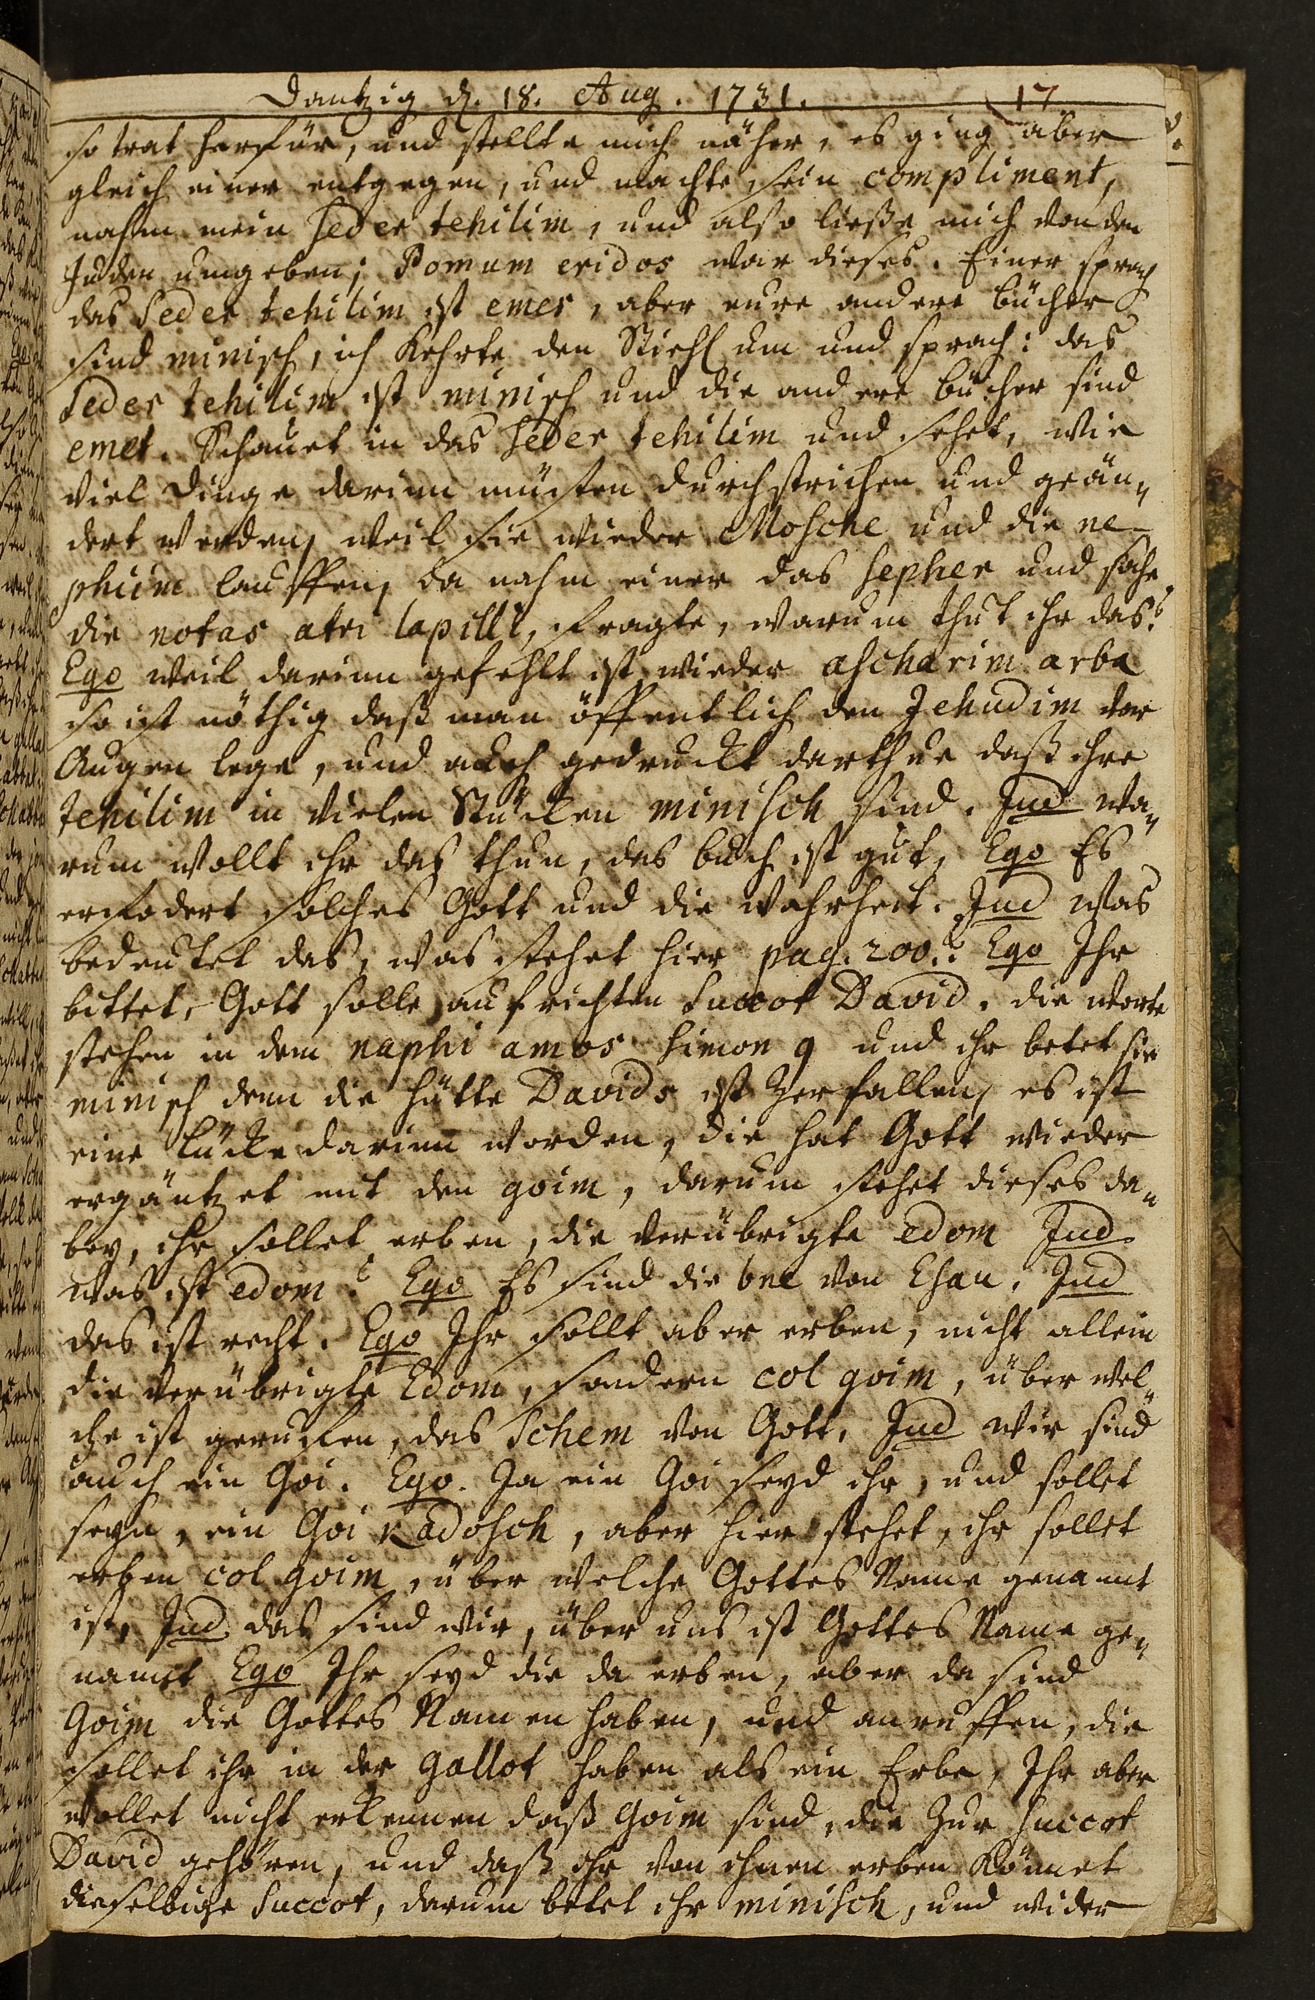 Dantzig d. 18. Aug. 1731. 17
so trat herfür, und stellte mich näher, es ging aber
gleich einer entgegen, und machte sein compliment,
nahm mein seder tehilim, und also ließe mich von den
Juden umgeben; Pomum eridos war dieses. Einer sprach
das Seder tehilim ist emes, aber eure andere bücher
sind minisch, ich kehrte den Stiehl um und sprach: das
Seder tehilim ist minisch und die andere bücher sind
emet. Schauet in das seder tehilim und sehet, wie
viel Dinge darinn müsten durchstrichen und geän„
dert werden, weil sie wieder Mosche und die ne
phiim lauffen, da nahm einer das sepher und sahe
die notas atri lapilli, fragte, warum thut ihr das?
Ego weil darinn gefehlt ist wieder aschärim arba
so ist nöthig daß man öffentlich den Jehudim vor
Augen lege, und auch gedruckt darthue daß ihre
tehilim in vielen Stücken minisch sind. Jud wa„
rum wollt ihr das thun, das buch ist gut, Ego Es
erfodert solches Gott und die Wahrheit. Jud Was
bedeutet das, was stehet hier pag. 200.? Ego Ihr
bittet, Gott solle aufrichten Succot David. die worte
stehen in dem naphi amos simon 9 und ihr betet sie
minisch denn die hütte Davids ist zerfallen, es ist
eine Lücke darinn worden, die hat Gott wieder
ergäntzet mit den goim, darum stehet dieses da„
bey, ihr sollet erben, die verübrigte edom Jud
was ist edom? Ego Es sind die bne von Esau. Jud
das ist recht. Ego Ihr sollt aber erben, nicht allein
die verübrigte Edom, sondern col goim, über wel„
che ist geruffen, das Schem von Gott, Jud wir sind
auch ein Goi. Ego. Ja ein Goi seyd ihr, und sollet
seyn, ein Goi Kadosch, aber hier stehet, ihr sollet
erben col goim, über welche Gottes Name genannt
ist, Jud das sind wir, über uns ist Gottes Name ge„
nannt Ego Ihr seyd die da erben, aber da sind
Goim die Gottes Namen haben, und anruffen, die
sollet ihr in der gallot haben als ein Erbe, Ihr aber
wollet nicht erkennen daß Goim sind, die zur succot
David gehören, und daß ihr von ihnen erben könnet
dieselbige Succot, darum betet ihr minisch, und wider